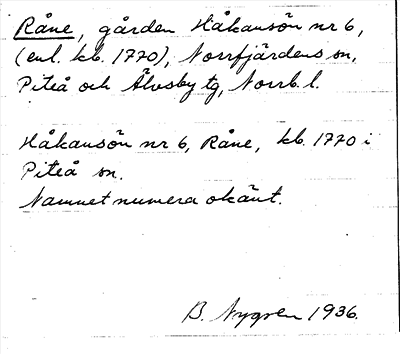 Råne, gården Håkansön nr 6,
(enl. kb. 1770), Norrfjärdens sn,
Piteå och Älvsby tg, Norrb. l.
Håkansön nr 6, Råne, kb. 1770 i
Piteå sn.
Namnet numera okänt.
B. Nygren 1936.